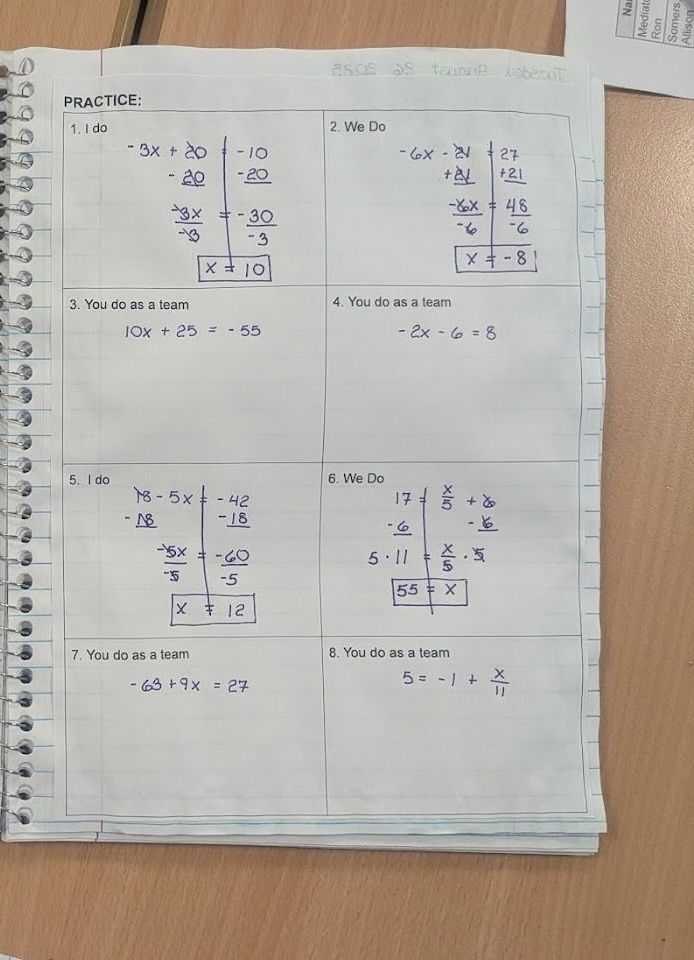 Nar
Mediato
Ron
Somers
Allison
Tuesday August 26 2025
PRACTICE:
1. I do
-3x + 20 = -10
-20 -20
-3x = -30
-3 -3
x = 10
2. We Do
-6x - 21 = 27
+21 +21
-6x = 48
-6 -6
x = -8
3. You do as a team
10x + 25 = -55
4. You do as a team
-2x - 6 = 8
5. I do
18 - 5x = -42
-18 -18
-5x = -60
-5 -5
x = 12
6. We Do
17 = x/5 + 6
-6 -6
5 · 11 = x/5 · 5
55 = x
7. You do as a team
-63 + 9x = 27
8. You do as a team
5 = -1 + x/11